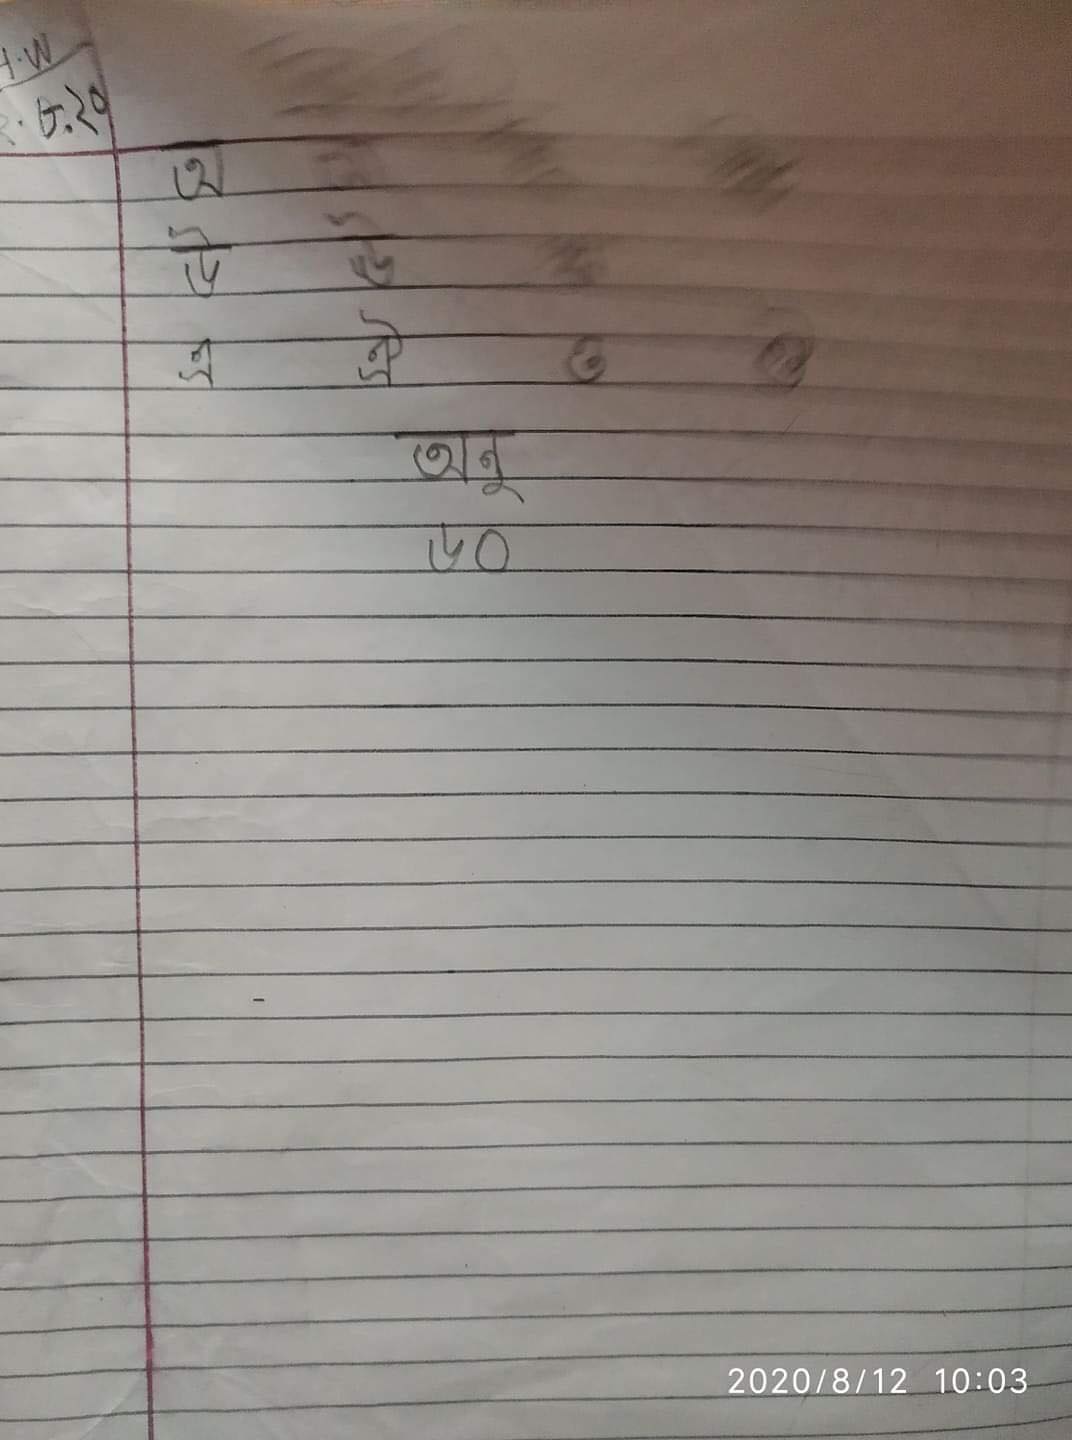 H.W
২.৮.২০
অ
উ ঊ
এ ঐ ও ঔ
অনু
৬০
2020/8/12 10:03